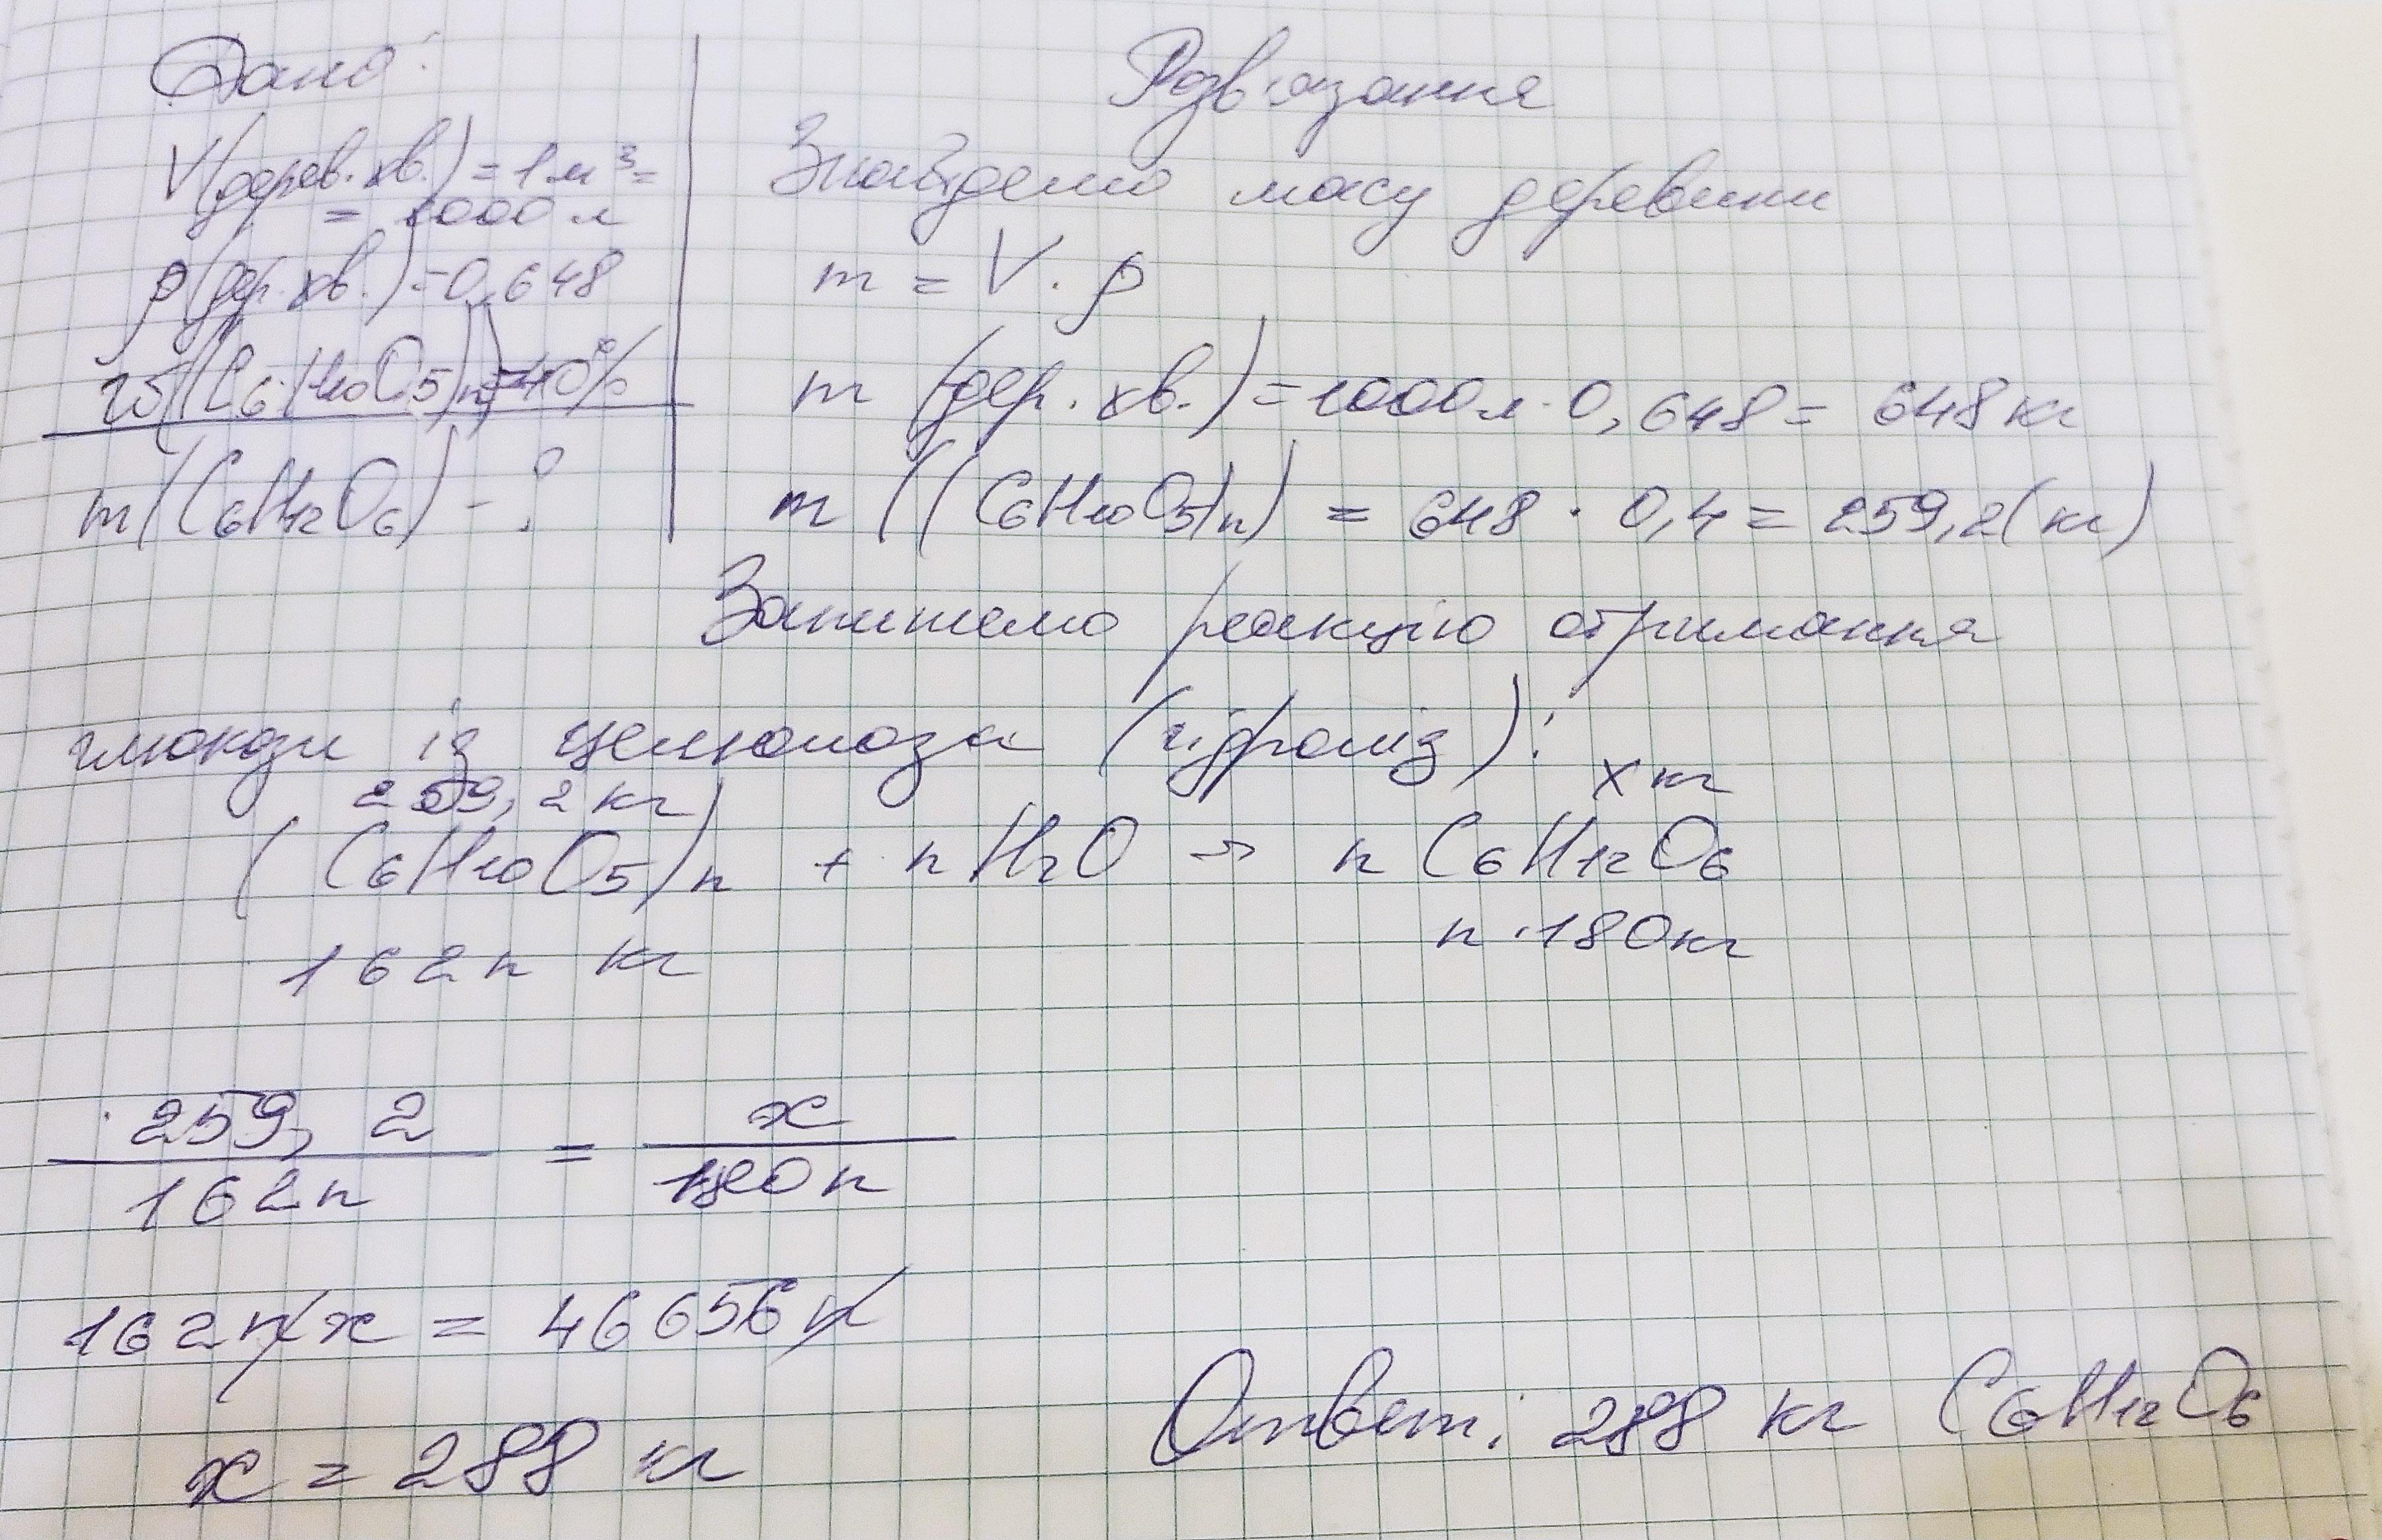 Дано:
V(дерев. хв.) = 1 м³ =
= 1000 л
ρ(дер. хв.) = 0,648
w((C₆H₁₀O₅)n) = 40%
m(C₆H₁₂O₆) - ?
Розв'язання
Знайдемо масу деревини
m = V · ρ
m (дер. хв.) = 1000 л · 0,648 = 648 кг
m ((C₆H₁₀O₅)n) = 648 · 0,4 = 259,2 (кг)
Запишемо реакцію отримання
глюкози із целюлоза (гідроліз):
259,2 кг x кг
(C₆H₁₀O₅)n + n H₂O → n C₆H₁₂O₆
162n кг n · 180 кг
259,2 / 162n = x / 180n
162n x = 46656 n
x = 288 кг
Ответ: 288 кг C₆H₁₂O₆